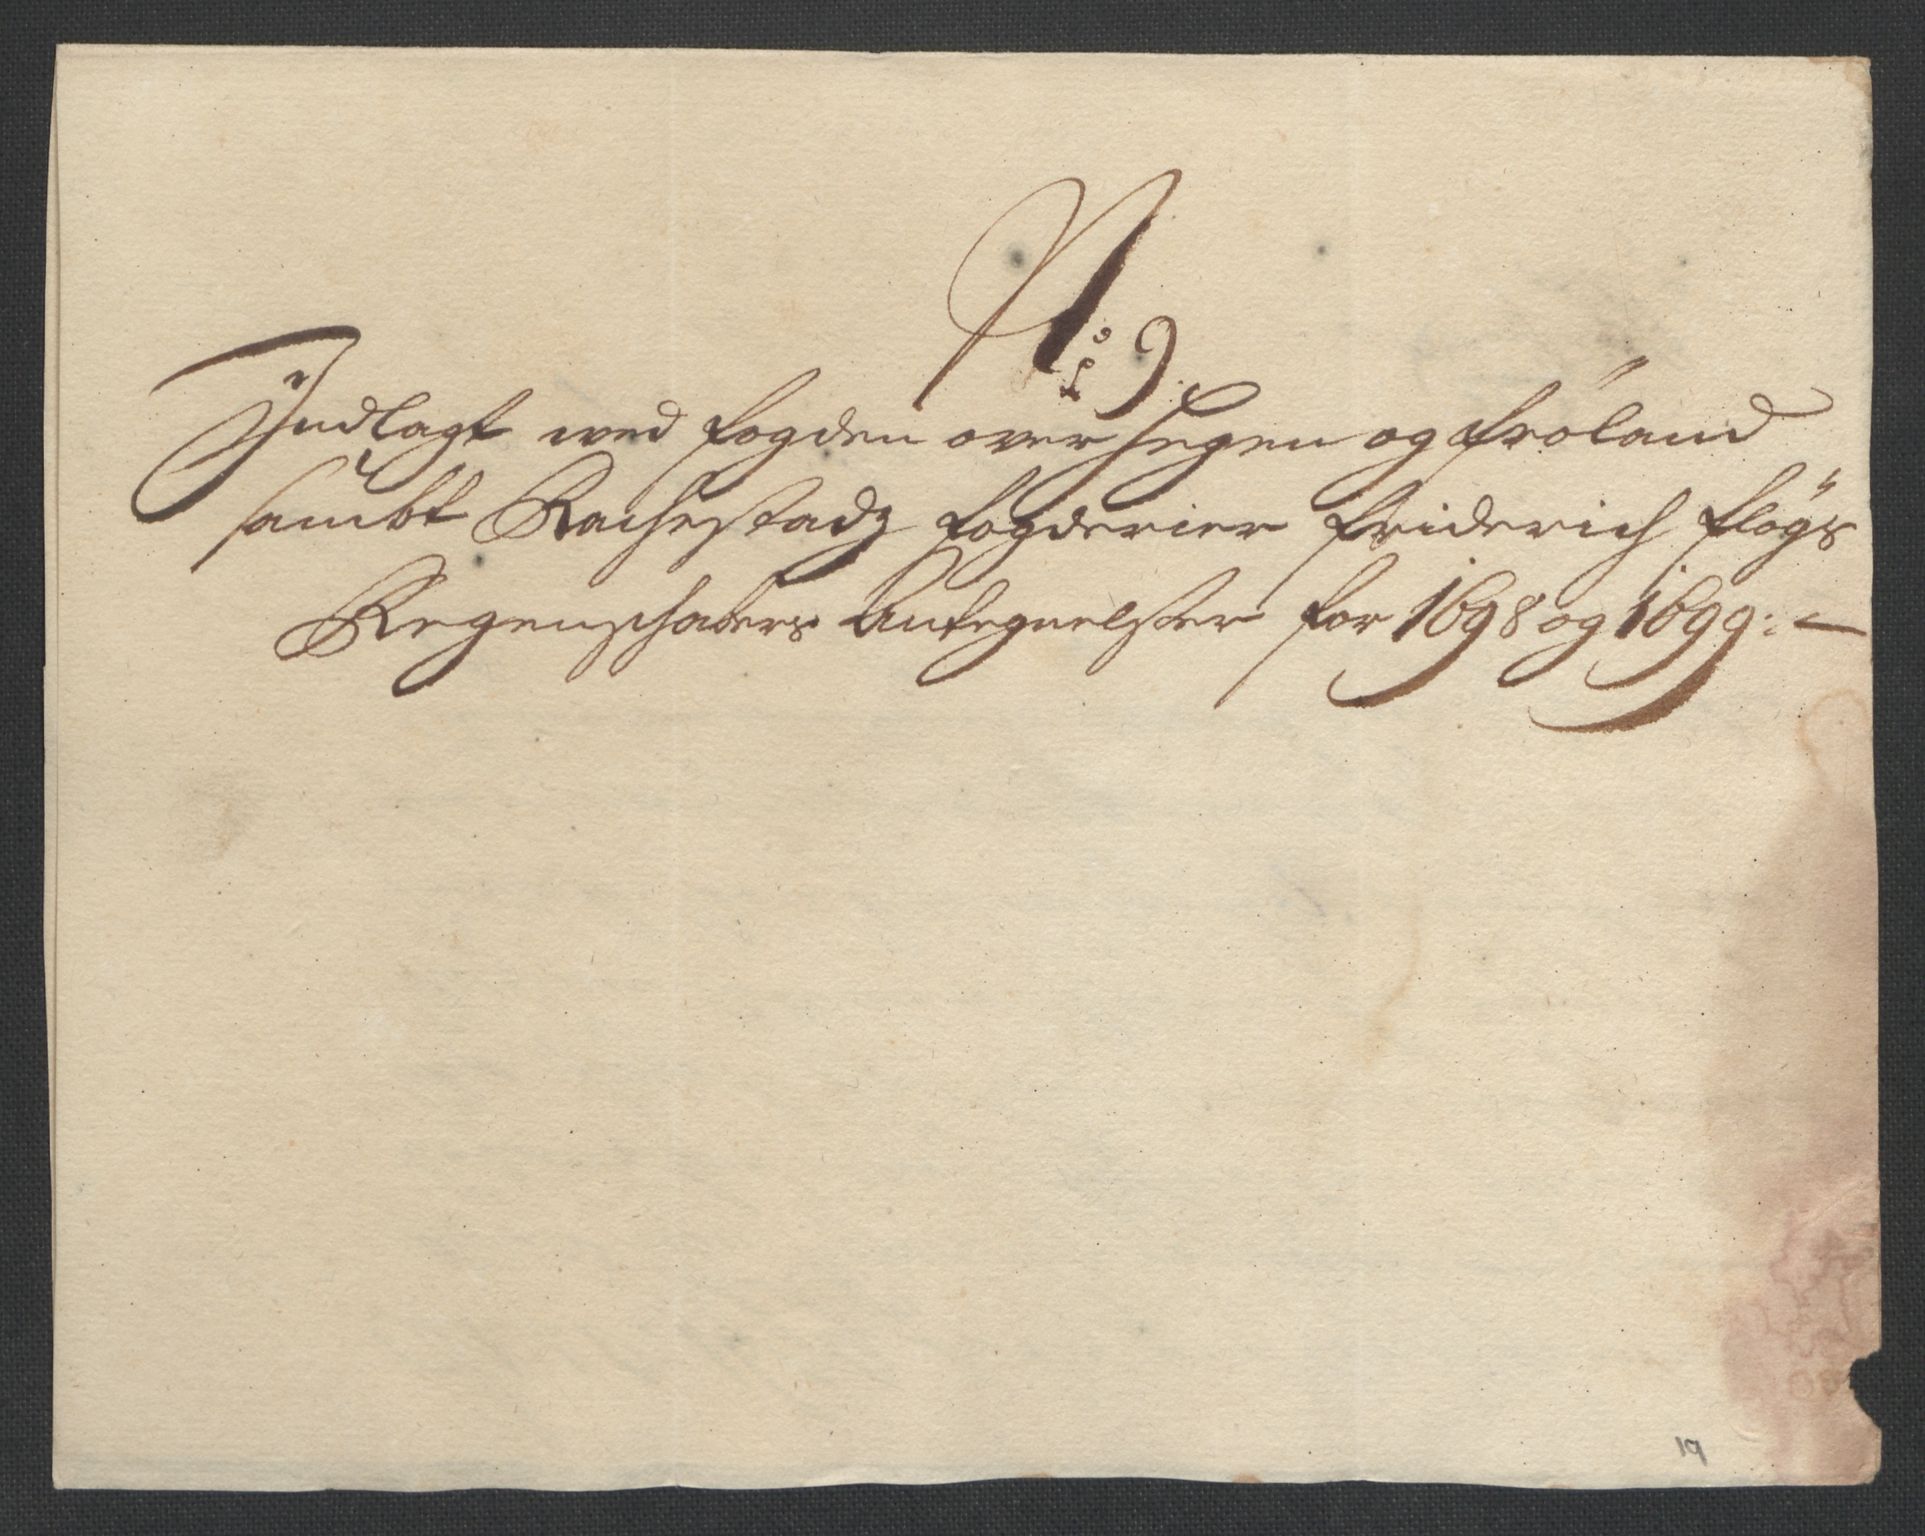 No: 9
Indlagt wed fogden over Hegen og Fröland
sambt Rachestadz fogderier Friderich Flógs
Regenschabers Antegnelser for 1698 og 1699:
19